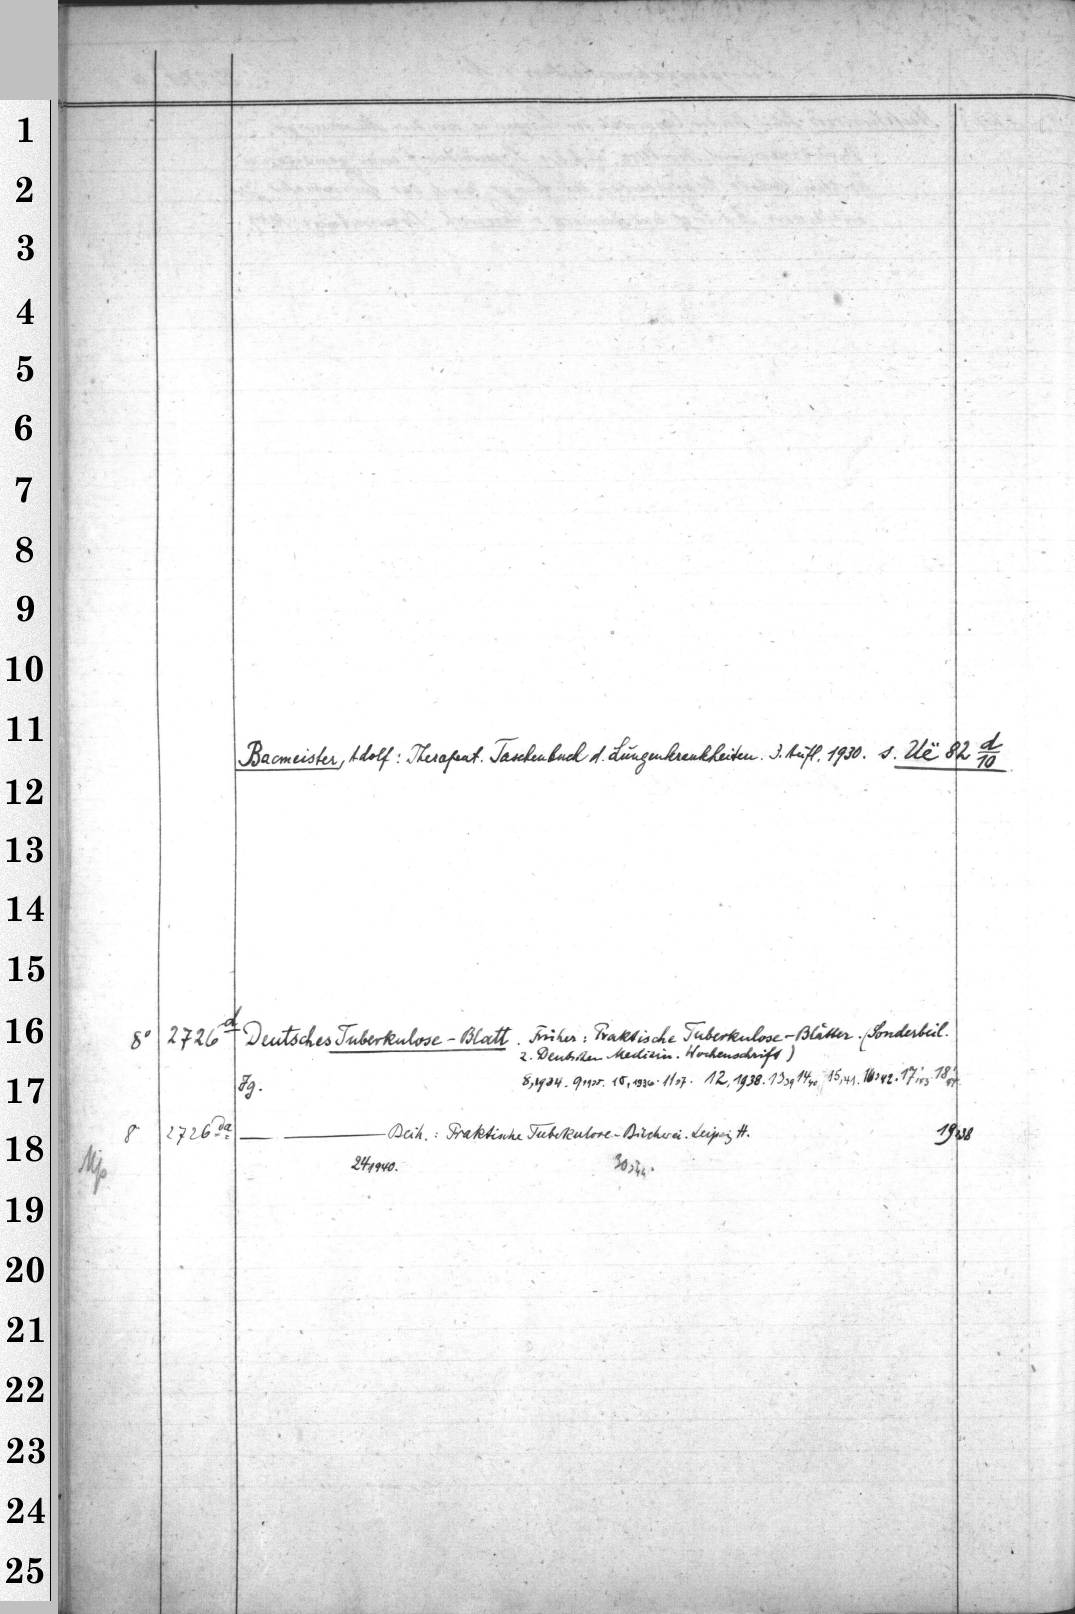 1
2
3
4
5
6
7
8
9
10
11
Bacmeister, Adolf: Therapeut. Taschenbuch d. Lungenkrankheiten. 3. Aufl. 1930. s. Uë 82 d/10
12
13
14
15
16
8° 2726 d Deutsches Tuberkulose-Blatt. Früher: Praktische Tuberkulose-Blätter. (Sonderbeil.
z. Deutschen Medizin. Wochenschrift)
17
Jg. 8,1934. 9,1935. 10,1936. 11,37. 12,1938. 13,39 14,40 15,41. 16,42. 17,43 18,44
8° 2726 da — ——— Beih.: Praktische Tuberkulose-Bücherei. Leipzig H. 19,38
18
24,1940. 30,44.
19
20
21
22
23
24
25